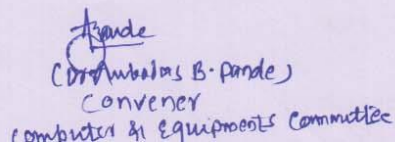 Apande
(Dr Ambadas B. Pande)
Convener
Computer & Equipments Committee